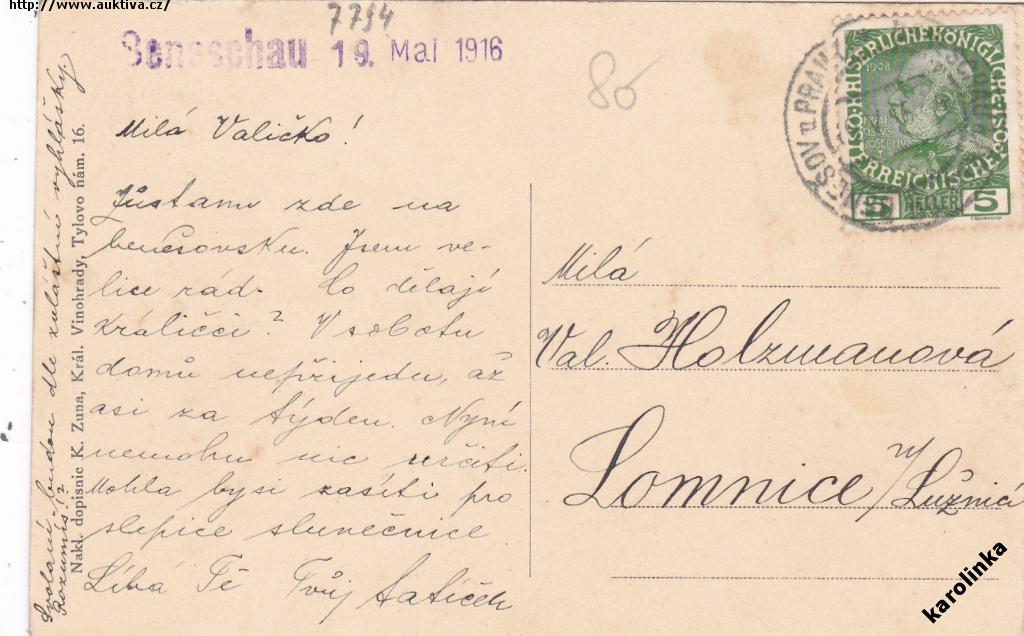 http://www.auktiva.cz/
7794
Beneschau 19. Mai 1916
80
Milá Valičko!
Zůstanu zde na
benešovsku. Jsem ve-
lice rád. Co dělají
králíčci? V sobotu
domů nepřijedu, až
asi za týden. Nyní
nemohu nic určiti.
Mohla bysi zasíti pro
slepice slunečnice.
Líbá Tě Tvůj tatíček
Svoláni budou dle zvláštní vyhlášky.
Rozumíš!?
Nakl. dopisnic K. Zuna, Král. Vinohrady, Tylovo nám. 16.
Milá
Val. Holzmanová
Lomnice n/Lužnicí
KAISERLICHE KÖNIGLICHE ÖSTERREICHISCHE POST
1908
FRAN
CISCVS
JOSEPH I
5 HELLER 5
BENEŠOV u PRAHY
karolinka